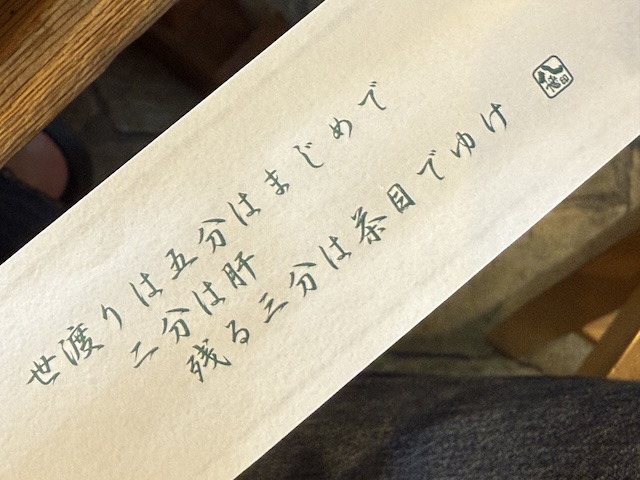 世渡りは五分はまじめで
二分は肝
残る三分は茶目でゆけ